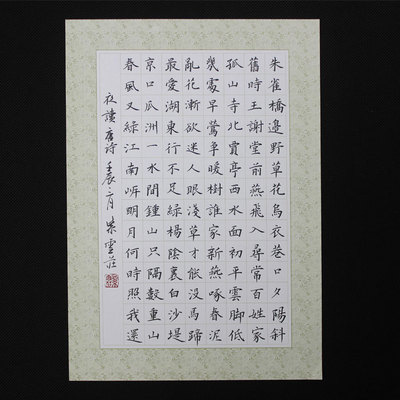 朱雀橋邊野草花烏衣巷口夕陽斜
舊時王謝堂前燕飛入尋常百姓家
孤山寺北賈亭西水面初平雲腳低
幾處早鶯爭暖樹誰家新燕啄春泥
亂花漸欲迷人眼淺草才能沒馬蹄
最愛湖東行不足綠楊陰裏白沙堤
京口瓜洲一水間鍾山只隔數重山
春風又綠江南岸明月何時照我還
夜讀唐詩壬辰月雲莊